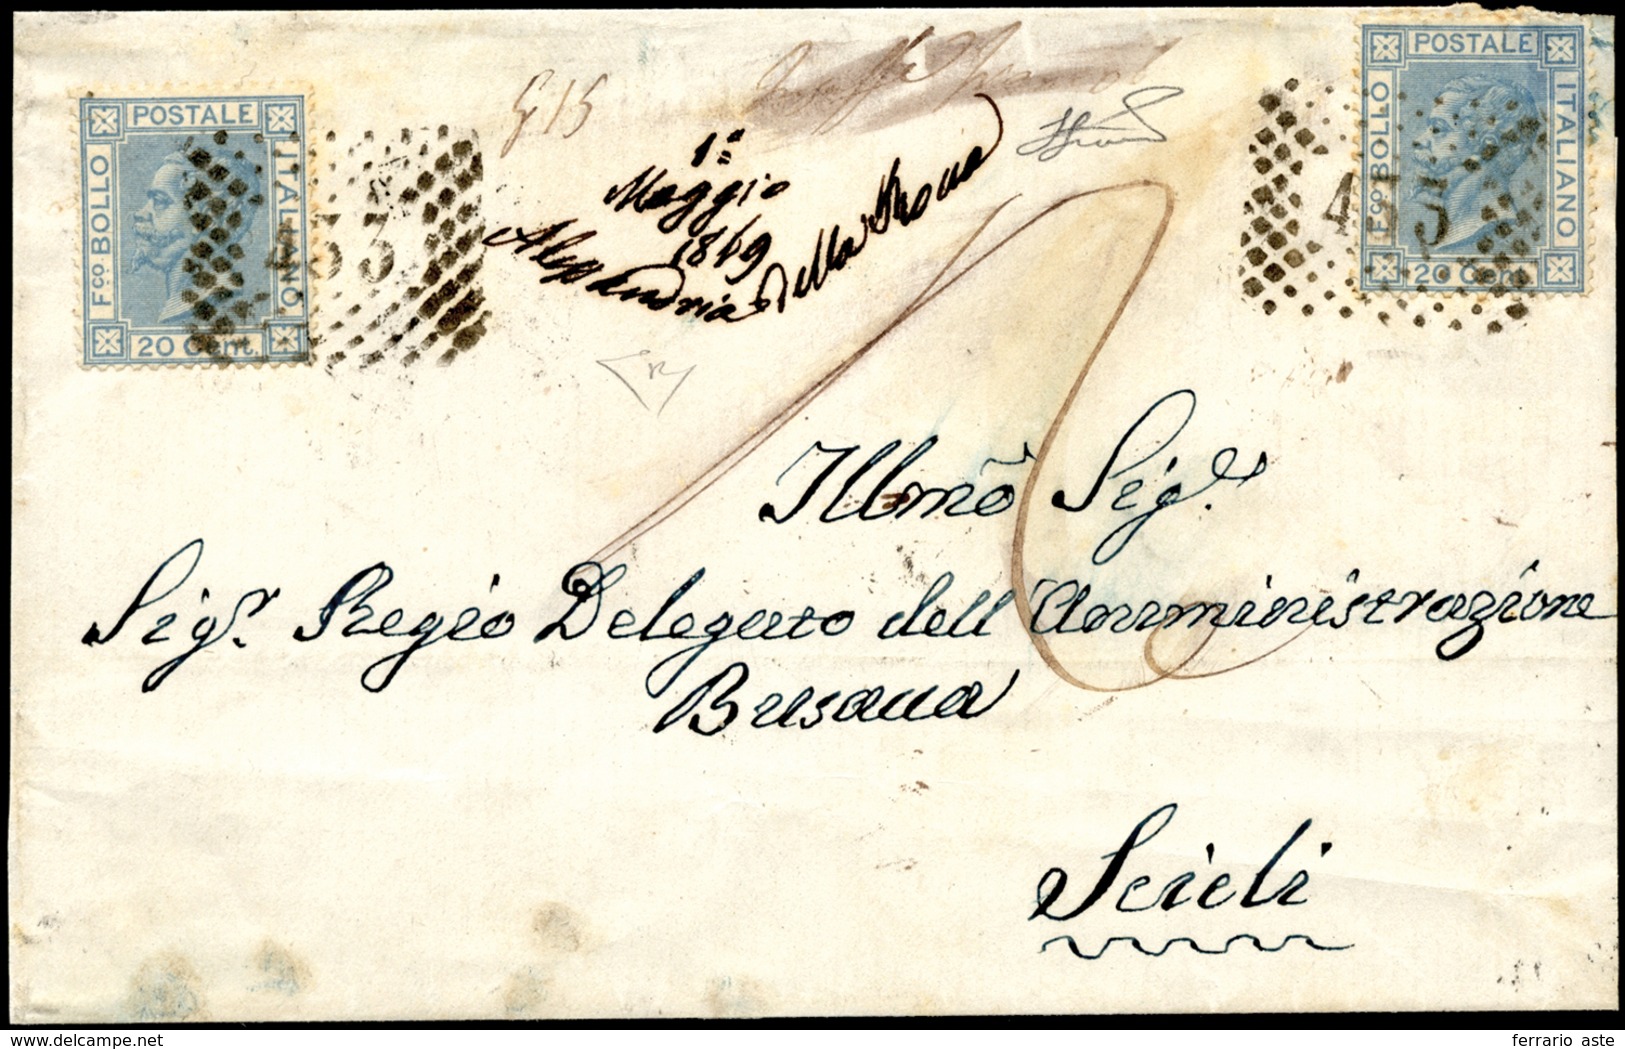 POSTALE
Fco BOLLO
ITALIANO
20 Cent.
POSTALE
Fco BOLLO
ITALIANO
20 Cent.
1a
Maggio
1869
Alessandria della Rocca
Illmo Sigr
Sigr. Regio Delegato dell'Amministrazione
Busacca
Scicli
delcampe.net
ferrario aste